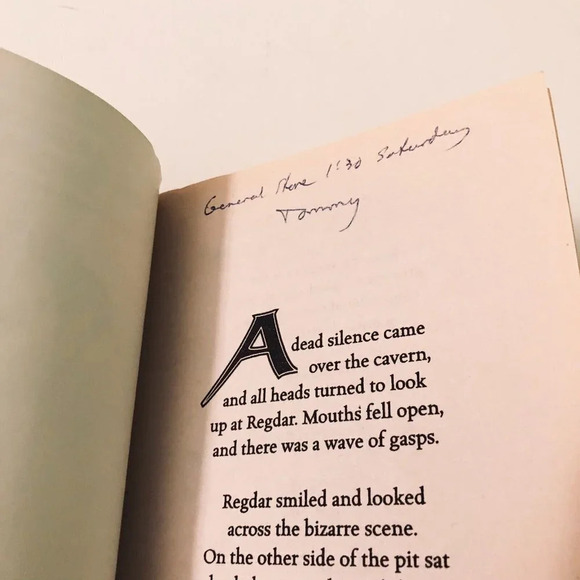 General Store 1:30 Saturday
Tommy
A dead silence came
over the cavern,
and all heads turned to look
up at Regdar. Mouths fell open,
and there was a wave of gasps.
Regdar smiled and looked
across the bizarre scene.
On the other side of the pit sat